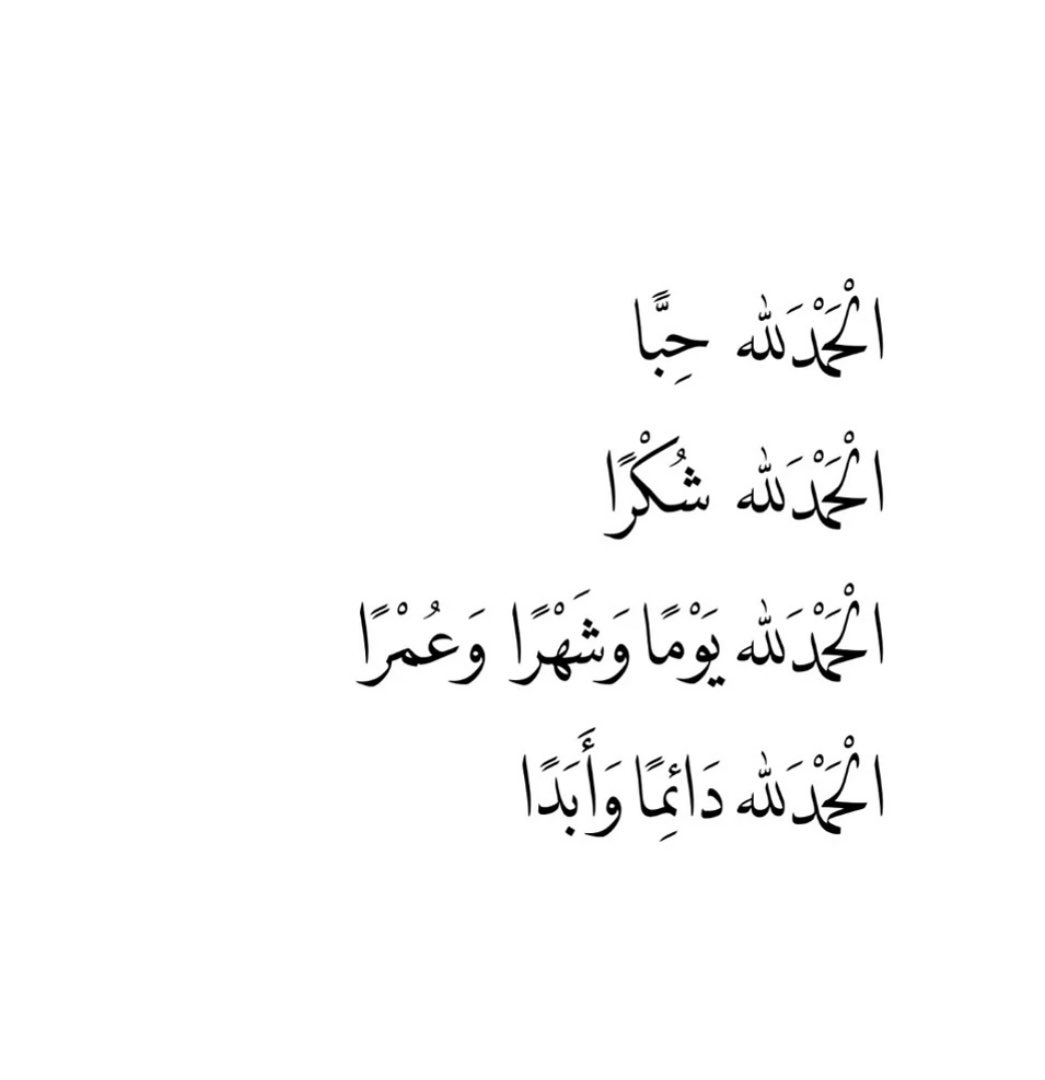 الْحَمْدَلله حِبًّا
الْحَمْدَلله شُكْرًا
الْحَمْدَلله يَوْمًا وَشَهْرًا وَعُمْرًا
الْحَمْدَلله دَائِمًا وَأَبَدًا